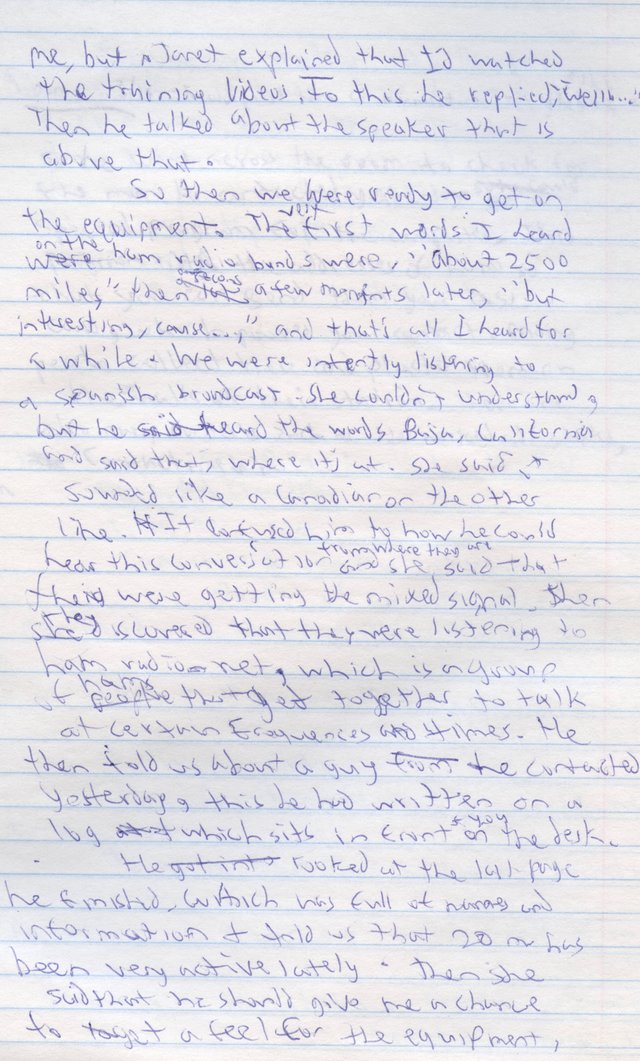 me, but Janet explained that I'd watched
the training videos. To this he replied, "Well..."
Then he talked about the speaker that is
above that.
So then we were ready to get on
the equipment. The very first words I heard
on the ham radio bands were, "about 2500
miles," then a few moments later, "but
interesting, cause...," and that's all I heard for
a while. We were intently listening to
a Spanish broadcast. She couldn't understand,
but he heard the words Baja, California
and said that, where it's at. She said it
sounded like a Canadian on the other
line. It confused him to how he could
hear this conversation from where they are and she said that
they were getting the mixed signal. Then
they discovered that they were listening to
ham radio net, which is a group
of hams that get together to talk
at certain frequences and times. He
then told us about a guy he contacted
yesterday, this he had written on a
log which sits in front of you on the desk.
He looked at the last page
he finished, which was full of names and
information & told us that 20 m has
been very active lately. Then she
said that he should give me a chance
to get a feel for the equipment,